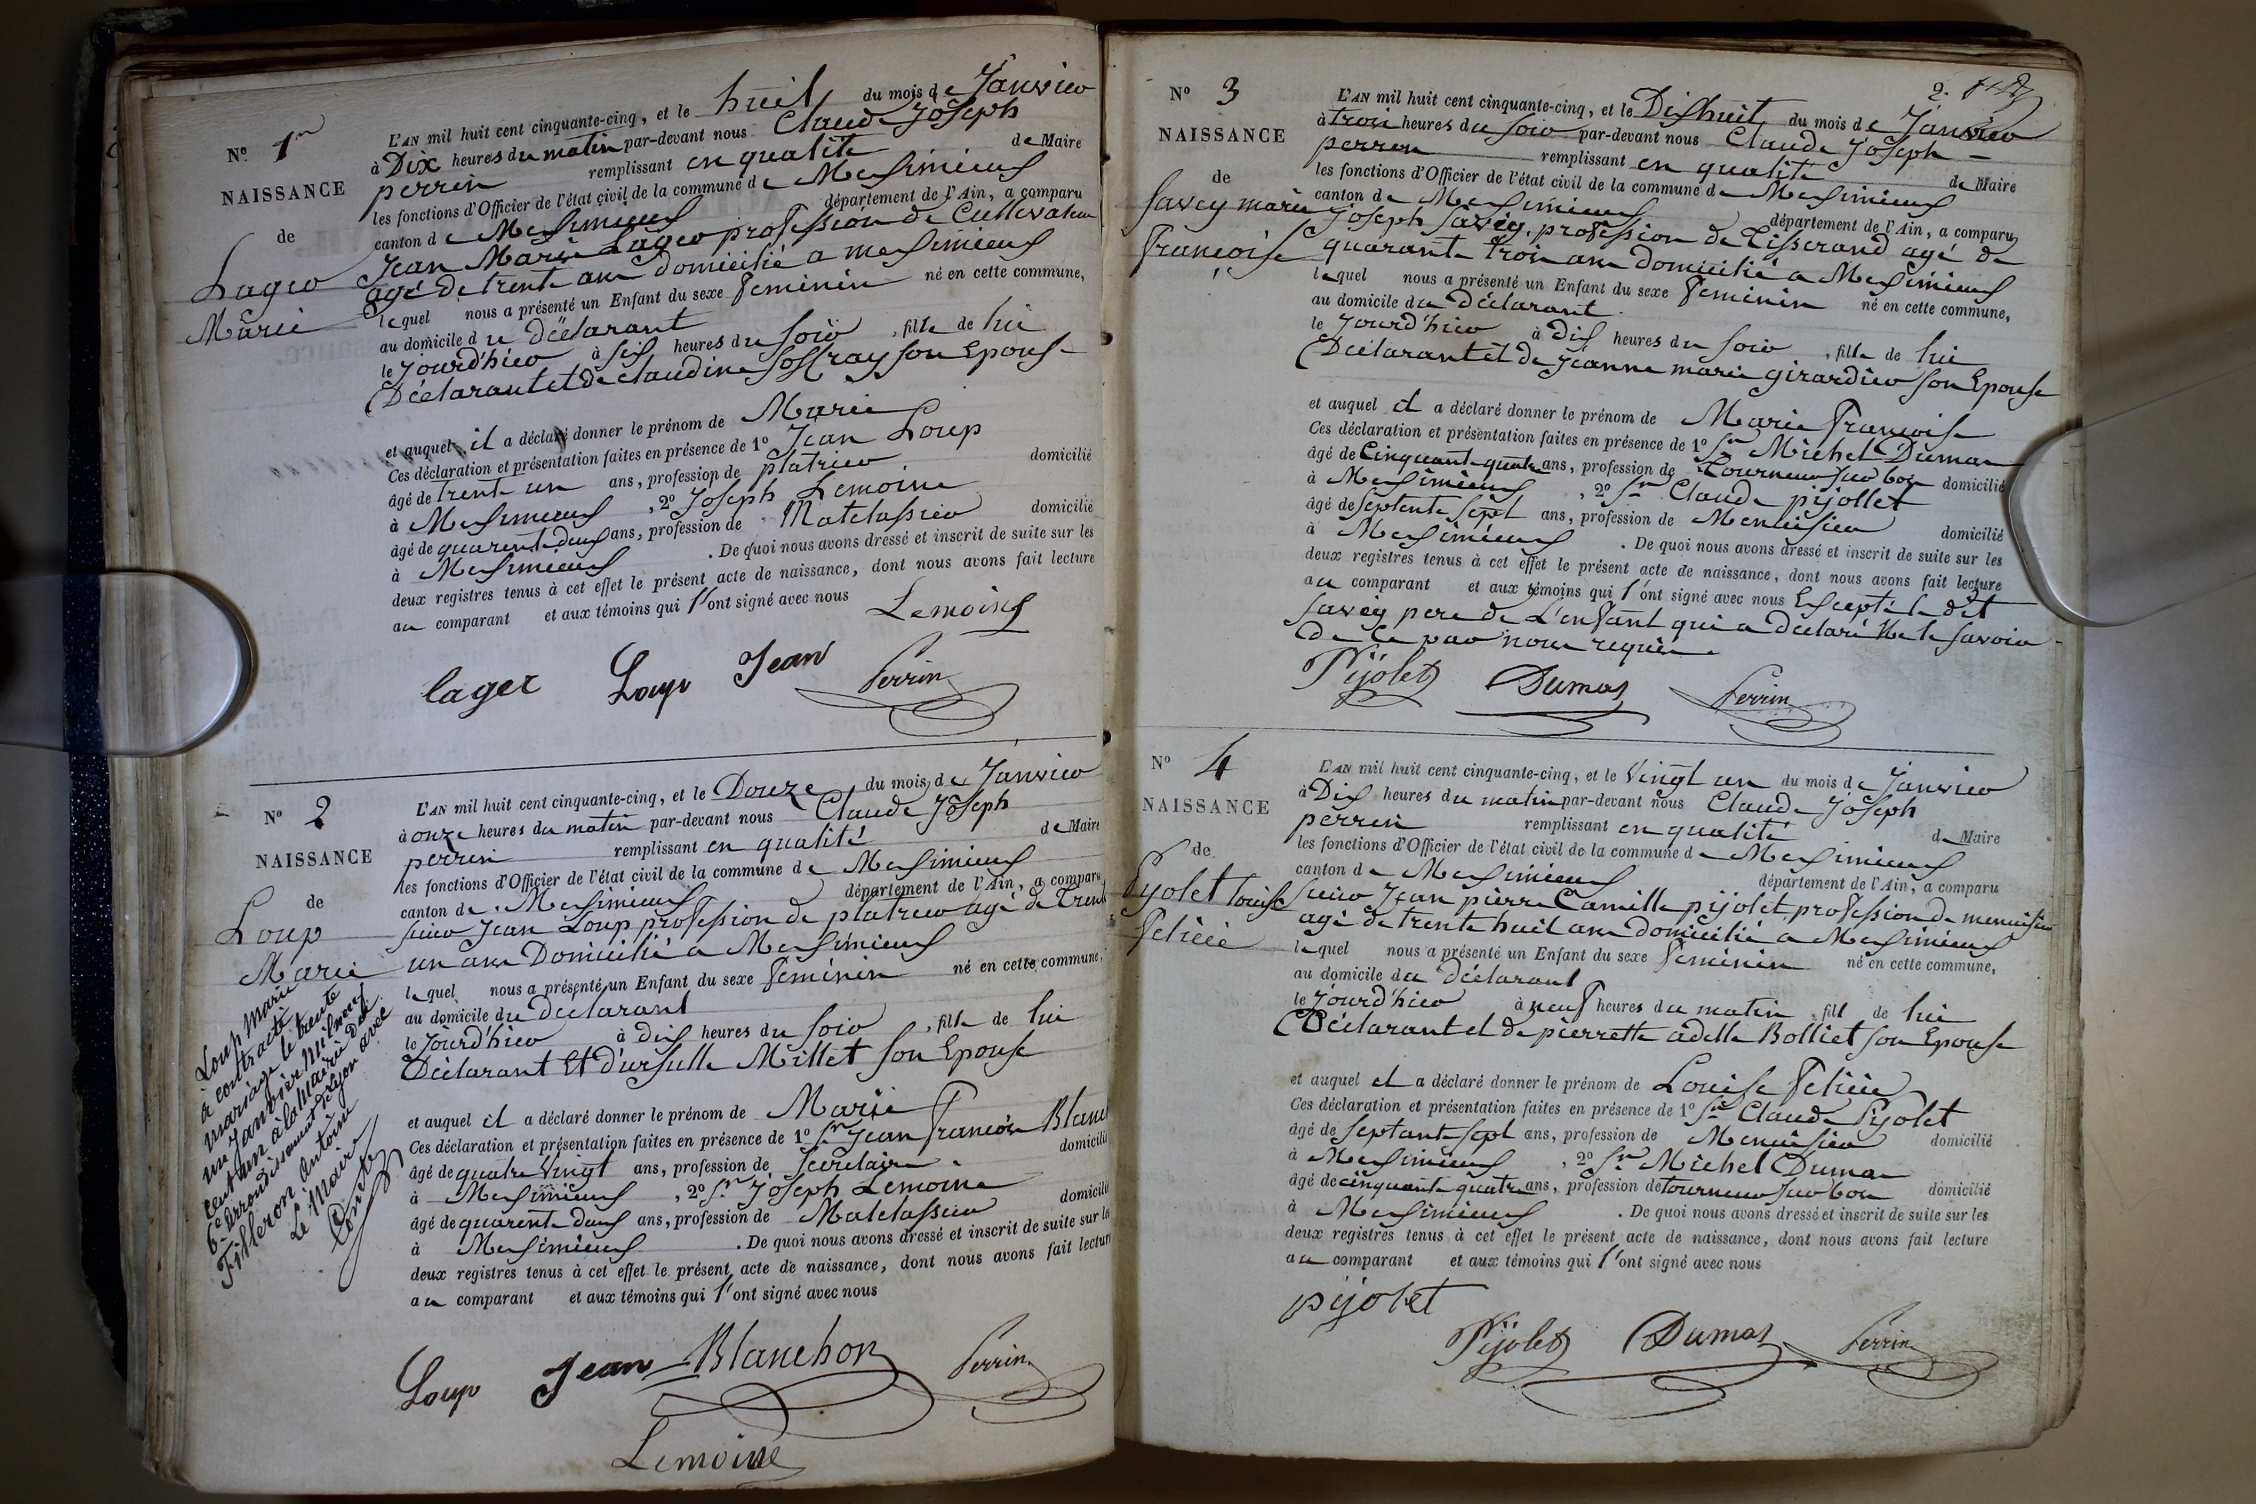 Nº 1er
NAISSANCE
de
Lager
Marie
L'AN mil huit cent cinquante-cinq, et le huit du mois de Janvier
à Dix heures du matin par-devant nous Claude Joseph
perrin remplissant en qualité de Maire
les fonctions d'Officier de l'état civil de la commune de Meximieux
canton de Meximieux département de l'Ain, a comparu
Jean Marie Lager profession de Cultivateur
agé de trente ans domicilié a meximieux
lequel nous a présenté un Enfant du sexe feminin né en cette commune,
au domicile du déclarant
le jourd'hier à six heures du soir, fille de lui
Déclarant et de claudine Soffray son Epouse
et auquel il a déclaré donner le prénom de Marie
Ces déclaration et présentation faites en présence de 1º Jean Loup
âgé de trente un ans, profession de platrier domicilié
à Meximieux, 2º Joseph Lemoine
âgé de quarente deux ans, profession de Matelassier domicilié
à Meximieux. De quoi nous avons dressé et inscrit de suite sur les
deux registres tenus à cet effet le présent acte de naissance, dont nous avons fait lecture
au comparant et aux témoins qui l'ont signé avec nous
Lemoine
lager Loup Jean Perrin
Nº 2
NAISSANCE
de
Loup
Marie
Loup Marie
a contracté
mariage le trente
un Janvier Mil neuf
cent un à la Mairie du
6e arrondissement de Lyon avec
Filleron Antoine
Le Maire
L'AN mil huit cent cinquante-cinq, et le Douze du mois de Janvier
à onze heures du matin par-devant nous Claude Joseph
perrin remplissant en qualité de Maire
les fonctions d'Officier de l'état civil de la commune de Meximieux
canton de Meximieux département de l'Ain, a comparu
sieur Jean Loup profession de platrier agé de trente
un ans Domicilié a Meximieux
lequel nous a présenté un Enfant du sexe feminin né en cette commune,
au domicile du declarant
le jourd'hier à dix heures du soir, fille de lui
Déclarant Et d'ursulle Millet son Epouse
et auquel il a déclaré donner le prénom de Marie
Ces déclaration et présentation faites en présence de 1º Sr Jean François Blanch
âgé de quatre Vingt ans, profession de Secretaire domicilié
à Meximieux, 2º Sr Joseph Lemoine
âgé de quarente deux ans, profession de Matelassier domicilié
à Meximieux. De quoi nous avons dressé et inscrit de suite sur les
deux registres tenus à cet effet le présent acte de naissance, dont nous avons fait lecture
au comparant et aux témoins qui l'ont signé avec nous
Loup Jean Blanchon Perrin
Lemoine
2.
Nº 3
NAISSANCE
de
Savey marie
françoise
L'AN mil huit cent cinquante-cinq, et le Dixhuit du mois de Janvier
à trois heures du soir par-devant nous Claude Joseph
perren remplissant en qualité de Maire
les fonctions d'Officier de l'état civil de la commune de Meximieux
canton de Meximieux département de l'Ain, a comparu
Joseph Savey, profession de Tisserand agé de
quarante trois ans domicilié a Meximieux
lequel nous a présenté un Enfant du sexe feminin né en cette commune,
au domicile du Déclarant
le jourd'hier à dix heures du soir, fille de lui
Déclarant et de jeanne marie girardier son Epouse
et auquel il a déclaré donner le prénom de Marie françoise
Ces déclaration et présentation faites en présence de 1º Sr Michel Dumas
âgé de Cinquante quatre ans, profession de Tourneur sur bois domicilié
à Meximieux, 2º Sr Claude pijollet
âgé de septente sept ans, profession de Menuisier domicilié
à Meximieux. De quoi nous avons dressé et inscrit de suite sur les
deux registres tenus à cet effet le présent acte de naissance, dont nous avons fait lecture
au comparant et aux témoins qui l'ont signé avec nous Excepté le dit
Savey pere de L'enfant qui a declaré Ne le savoir
de ce par nous requis.
Pijolet Dumas Perrin
Nº 4
NAISSANCE
de
Pyolet louise
felicie
L'AN mil huit cent cinquante-cinq, et le Vingt un du mois de Janvier
à Dix heures du matin par-devant nous Claude Joseph
perrin remplissant en qualité de Maire
les fonctions d'Officier de l'état civil de la commune de Meximieux
canton de Meximieux département de l'Ain, a comparu
sieur Jean pierre Camille pijolet, profession de menuisier
agé de trente huit ans domicilié a Meximieux
lequel nous a présenté un Enfant du sexe feminin né en cette commune,
au domicile du déclarant
le jourd'hier à neuf heures du matin, fill de lui
Déclarant et de pierrette adelle Bolliet son Epouse
et auquel il a déclaré donner le prénom de Louise felicie
Ces déclaration et présentation faites en présence de 1º Sr Claude Pyolet
âgé de septante sept ans, profession de Menuisier domicilié
à Meximieux, 2º Sr Michel Dumas
âgé de cinquante quatre ans, profession de tourneur sur bois domicilié
à Meximieux. De quoi nous avons dressé et inscrit de suite sur les
deux registres tenus à cet effet le présent acte de naissance, dont nous avons fait lecture
au comparant et aux témoins qui l'ont signé avec nous
pijolet
Pijolet Dumas Perrin